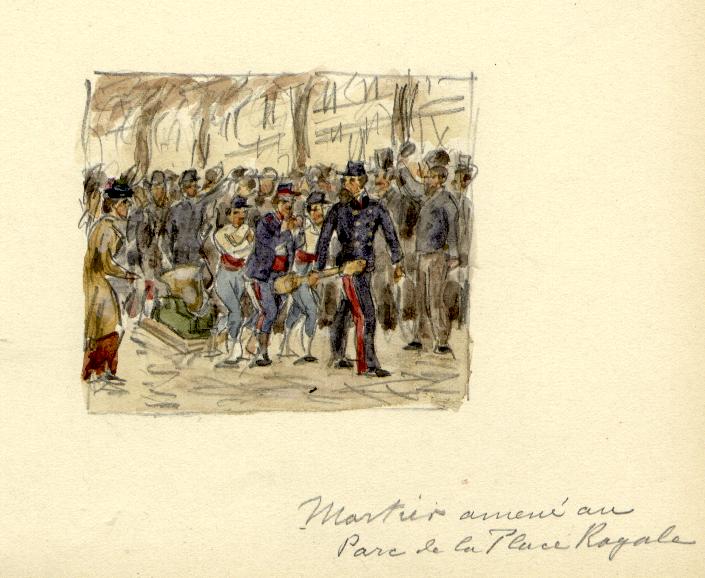 Mortier amené au
Parc de la Place Royale